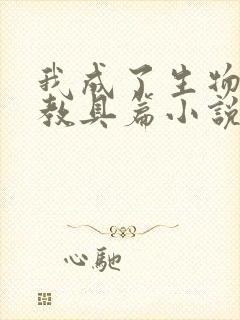 我成了生物
教具篇小說
心馳